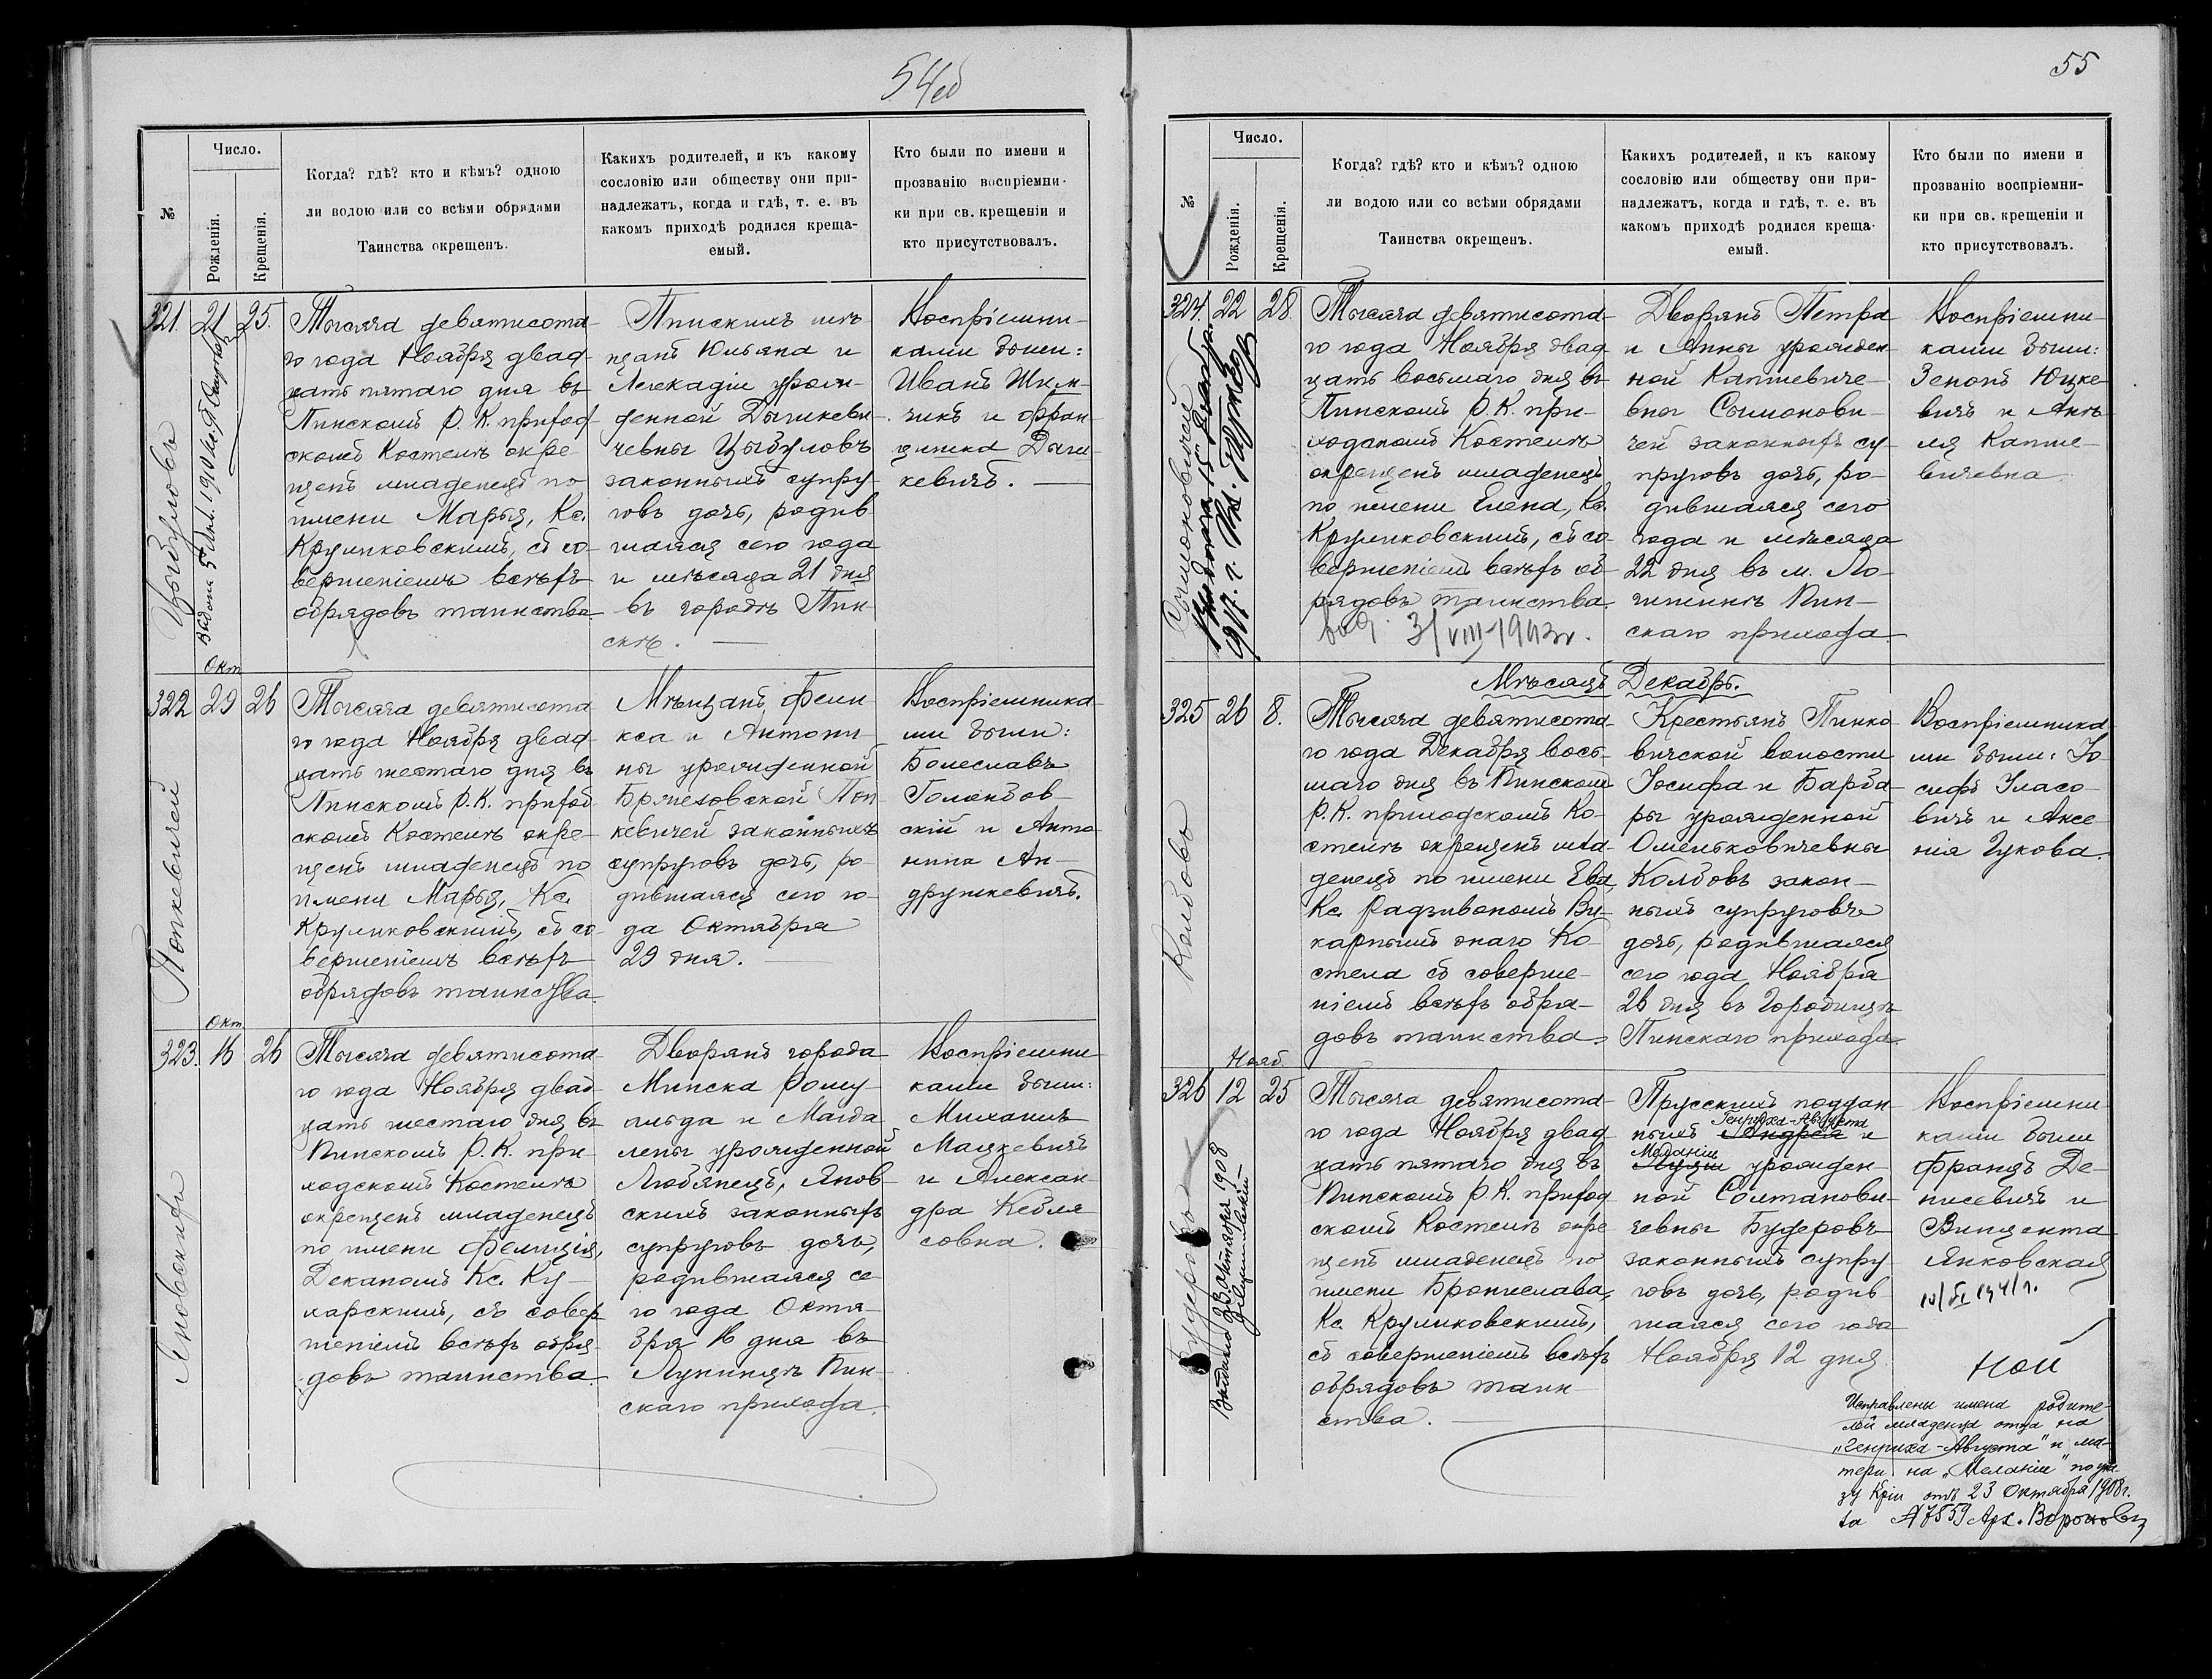 54об
№
Число.
Рожденія.
Крещенія.
Когда? гдѣ? кто и кѣмъ? одною
ли водою или со всѣми обрядами
Таинства окрещенъ.
Какихъ родителей, и къ какому
сословію или обществу они при-
надлежатъ, когда и гдѣ, т. е. въ
какомъ приходѣ родился креща-
емый.
Кто были по имени и
прозванію воспріемни-
ки при св. крещеніи и
кто присутствовалъ.
321. 21 25.
Цыбуловъ
Тысяча девятисота-
го года Ноября двад-
цать пятаго дня въ
Пинскомъ Р. К. приход
скомъ Костелѣ окре-
щенъ младенецъ по
имени Марья, Кс.
Крумпковскимъ, съ со-
вершеніемъ всѣхъ
обрядовъ таинства.
Пинскихъ мѣ-
щанъ Юльяна и
Леокадіи урож-
денной Дышкеви-
чевны Цыбуловъ
законныхъ супру-
говъ дочь, родив-
шаяся сего года
и мѣсяца 21 дня
въ городѣ Пин-
скѣ.
Воспріемни-
ками были:
Иванъ
и Фран-
цишка Дыш-
кевичъ.
Окт
322 29 26
Попкевичей
Тысяча девятисота
го года Ноября двад-
цать шестаго дня въ
Пинскомъ Р. К. приход
скомъ Костелѣ окре-
щенъ младенецъ по
имени Марья, Кс.
Крумпковскимъ, съ со-
вершеніемъ всѣхъ
обрядовъ таинства.
Мѣщанъ Фели-
кса и Антони-
ны урожденной
Поп-
кевичей законныхъ
супруговъ дочь, ро-
дившаяся сего го-
да Октября
29 дня.
Воспріемника-
ми были:
Болеславъ
Голомбов-
скій и Анто-
нина Ан-
друшкевичъ.
Окт.
323. 16 26
Яновскихъ
Тысяча девятисота-
го года Ноября двад-
цать шестаго дня въ
Пинскомъ Р. К. при-
ходскомъ Костелѣ
окрещенъ младенецъ
по имени Фелиція,
Деканомъ Кс. Ку-
харскимъ, съ совер
шеніемъ всѣхъ обря-
довъ таинства.
Дворянъ города
Минска Рому-
альда и Магда-
лены урожденной
Любянецъ, Янов-
скихъ законныхъ
супруговъ дочь,
родившаяся се-
го года Октя-
бря 16 дня въ
Лунинцѣ Пин-
скаго прихода.
Воспріемни-
ками были:
Михаилъ
Мацкевичъ
и Алексан-
дра Кебля-
совна.
55
№
Число.
Рожденія.
Крещенія.
Когда? гдѣ? кто и кѣмъ? одною
ли водою или со всѣми обрядами
Таинства окрещенъ.
Какихъ родителей, и къ какому
сословію или обществу они при-
надлежатъ, когда и гдѣ, т. е. въ
какомъ приходѣ родился креща-
емый.
Кто были по имени и
прозванію воспріемни-
ки при св. крещеніи и
кто присутствовалъ.
324. 22 28.
Сымоновичей
Тысяча девятисота-
го года Ноября двад
цать восьмаго дня въ
Пинскомъ Р. К. при-
ходскомъ Костелѣ
окрещенъ младенецъ
по имени Елена, Кс.
Крумпковскимъ, съ со-
вершеніемъ всѣхъ об-
рядовъ таинства.
выд. 3/VIII-1943 г.
Дворянъ Петра
и Анны урожден-
ной Капшевиче-
вны Сымонови-
чей законныхъ су-
пруговъ дочь, ро-
дившаяся сего
года и мѣсяца
22 дня въ м. Ло-
гишинѣ Пин-
скаго прихода.
Воспріемни-
ками были:
Зенонъ Юцке-
вичъ и Анѣ-
ля Капше-
вичевна.
Мѣсяцъ Декабрь.
325 26 8.
Колбовъ
Тысяча девятисота-
го года Декабря вось-
маго дня въ Пинскомъ
Р. К. приходскомъ Ко-
стелѣ окрещенъ мла-
денецъ по имени Ева,
Кс. Радзивономъ Ви-
карнымъ онаго Ко-
стела съ соверше-
ніемъ всѣхъ обря-
довъ таинства.
Крестьянъ Пинко-
вичской волости
Іосифа и Барба-
ры урожденной
Омельковичевны
Колбовъ закон-
ныхъ супруговъ
дочь, родившаяся
сего года Ноября
26 дня въ Городищѣ
Пинскаго прихода.
Воспріемника-
ми были: Іо-
сифъ Уласо-
вичъ и Аксе-
нія Гукова.
Нояб.
326 12 25
Будеровъ
Тысяча девятисота-
го года Ноября двад-
цать пятаго дня въ
Пинскомъ Р. К. приход
скомъ Костелѣ окре
щенъ младенецъ по
имени Бронислава,
Кс. Крумпковскимъ,
съ совершеніемъ всѣхъ
обрядовъ таин-
ства.
Прусскихъ поддан-
Генриха-Августа
ныхъ Андрея и
Меланіи
Луціи урожден-
ной Солтанови-
чевны Будеровъ
законныхъ супру-
говъ дочь, родив-
шаяся сего года
Ноября 12 дня.
Воспріемни-
ками были
Францъ Де-
нисевичъ и
Винцента
Янковская
10/XI 1941 г.
Исправлены имена родите-
лей младенца отца на
„Генриха-Августа" и ма-
тери на „Меланіи" по ука-
зу Кріи отъ 23 Октября 1908 г.
за № 7559